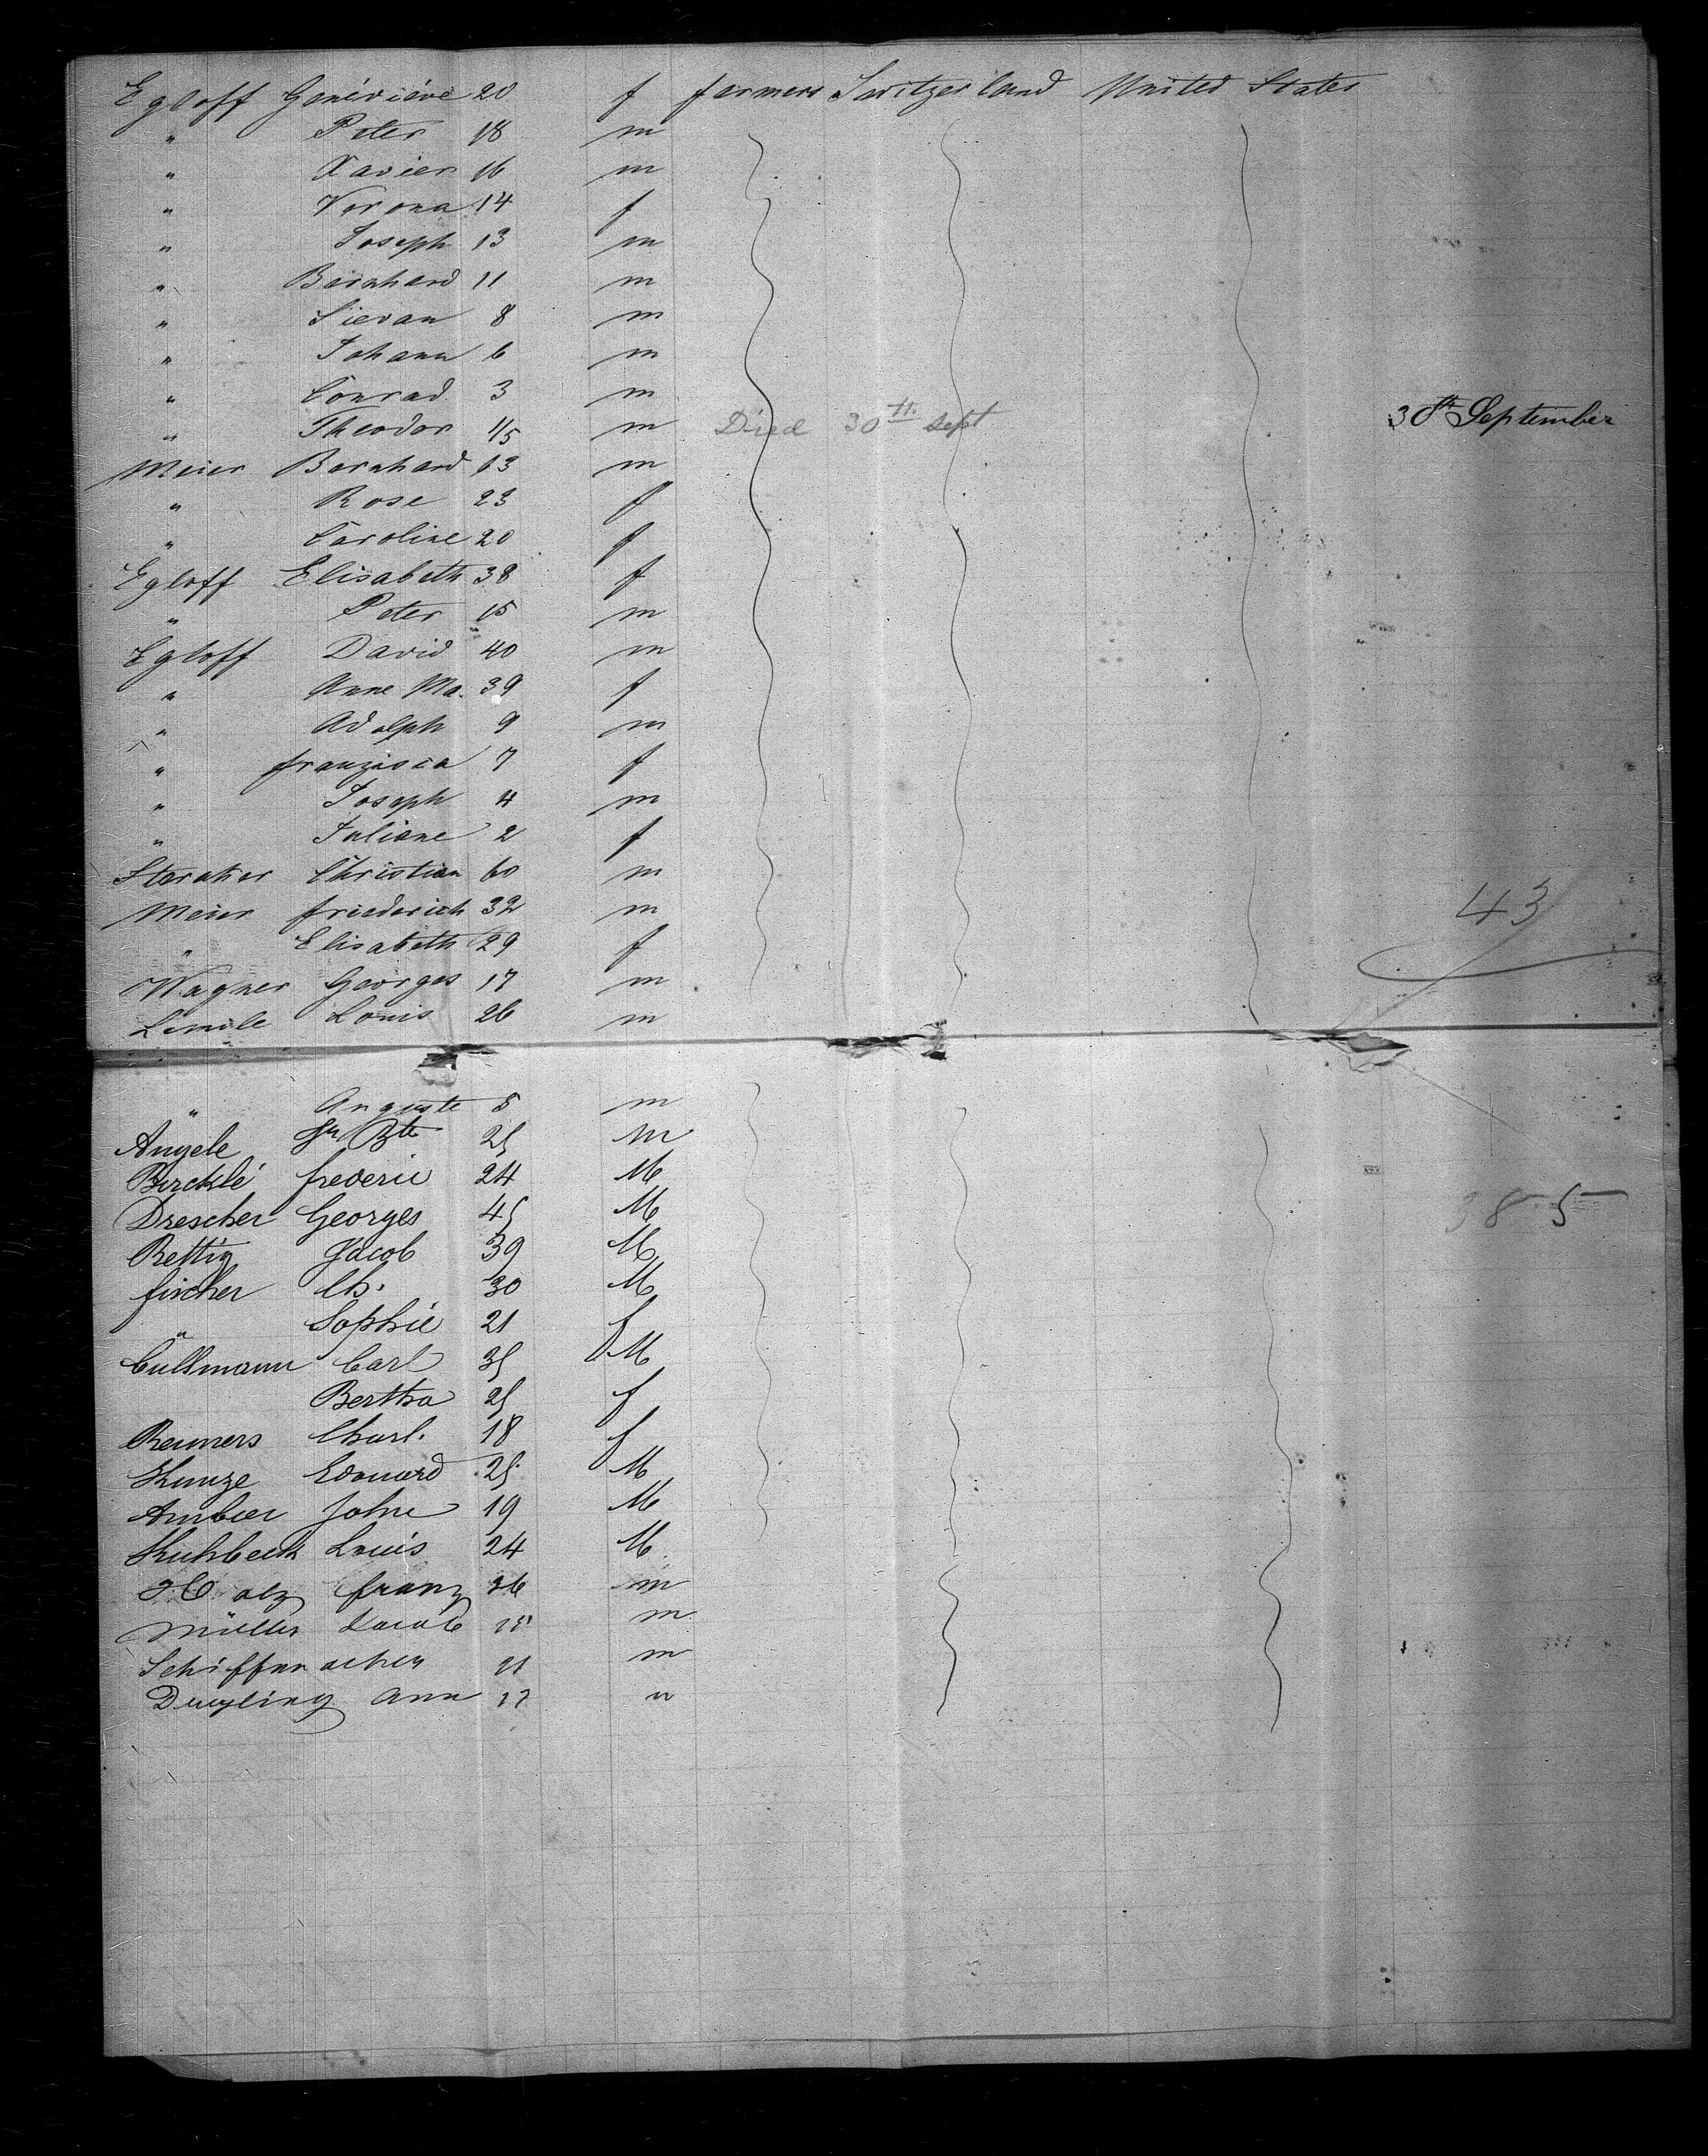 Egloff Genéviève 20 f farmers Switzerland United States
" Peter 18 m
" Xavier 16 m
" Verona 14 f
" Joseph 13 m
" Bernhard 11 m
" 8 m
" Johann 6 m
" Conrad 3 m
" Theodor m Died 30th Sept 30th September
Meier Bernhard 13 m
" Rose 23 f
" Caroline 20 f
Egloff Elisabeth 38 f
" Peter 15 m
Egloff David 40 m
" Anne Ma. 39 f
" Adolph 9 m
" franzisca 7 f
" Joseph 4 m
" Juliane 2 f
Christian 60 m
Meier friederich 32 m 43
" Elisabeth 29 f
Wagner Georges 17 m
Louis 26 m
" Auguste 8 m
Angele Jn Bte 25 m
Bircklé frederic 24 M
Drescher Georges 45 M 38 5
Rettig Jacob 39 M
fischer Ch. 30 M
" Sophie 21 f
Cullmann Carl 35 M
Bertha 25 f
Reimers Charl. 18 f
Kunze Edouard 25 M
John 19 M
Louis 24 M
franz 26 m
Müller Jacob m
21 m
Ann 17